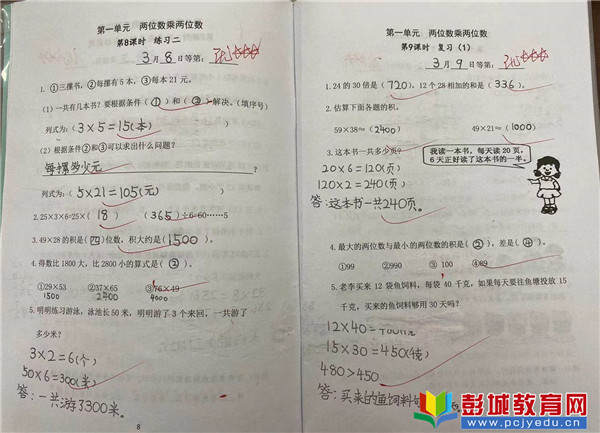 第一单元 两位数乘两位数
第8课时 练习二
3月8日等第:
1. ①三摞书,②每摞有5本,③每本21元。
(1)一共有几本书?要根据条件(①)和(②)解决。(填序号)
列式为:( 3×5=15(本) )
(2)根据条件②和③可以求出什么问题?
每摞多少元?
列式为:( 5×21=105(元) )
2.25×3×6=25×( 18 ) ( 365 )÷6=60……5
3.49×28的积是(四)位数,积大约是( 1500 )。
4.得数比1800大,比2800小的算式是( ② )。
①29×53 ②37×65 ③76×49
1500 2400 4000
5.明明练习游泳,泳池长50米,明明游了3个来回,一共游了
多少米?
3×2=6(个)
50×6=300(米)
答:一共游了300米。
8
第一单元 两位数乘两位数
第9课时 复习(1)
3月9日等第:
1.24的30倍是( 720 ),12个28相加的和是( 336 )。
2.估算下面各题的积。
59×38≈( 2400 ) 49×21≈( 1000 )
3.这本书一共多少页?
我读一本书,每天读20页,
6天正好读了这本书的一半。
20×6=120(页)
120×2=240(页)
答:这本书一共240页。
4.最大的两位数与最小的两位数的积是( ② ),差是( ④ )。
①99 ②990 ③100 ④89
5.老李买来12袋鱼饲料,每袋40千克,如果每天要往鱼塘投放15
千克,买来的鱼饲料够用30天吗?
12×40=
15×30=450(千克)
480>450
答:买来的鱼饲料够
彭城教育网
www.pcjyedu.cn